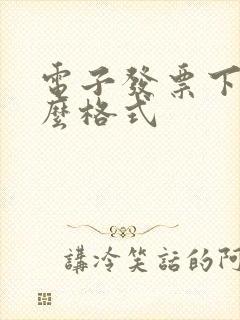 電子發票下
麼格式
講冷笑話的阿